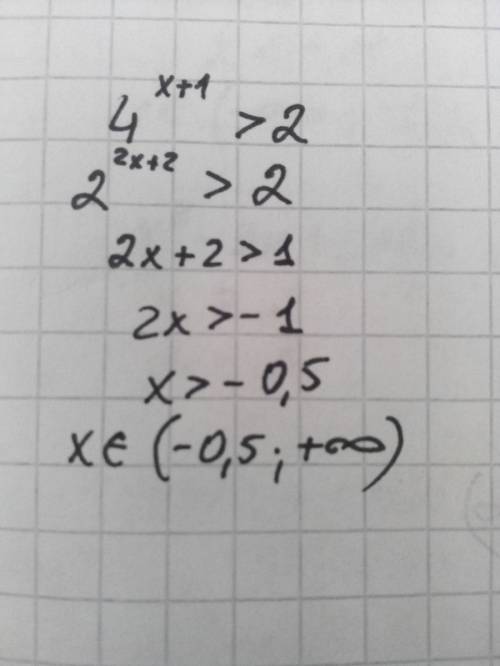 4^{x+1} > 2
2^{2x+2} > 2
2x + 2 > 1
2x > - 1
x > - 0,5
x ∈ (-0,5; +∞)